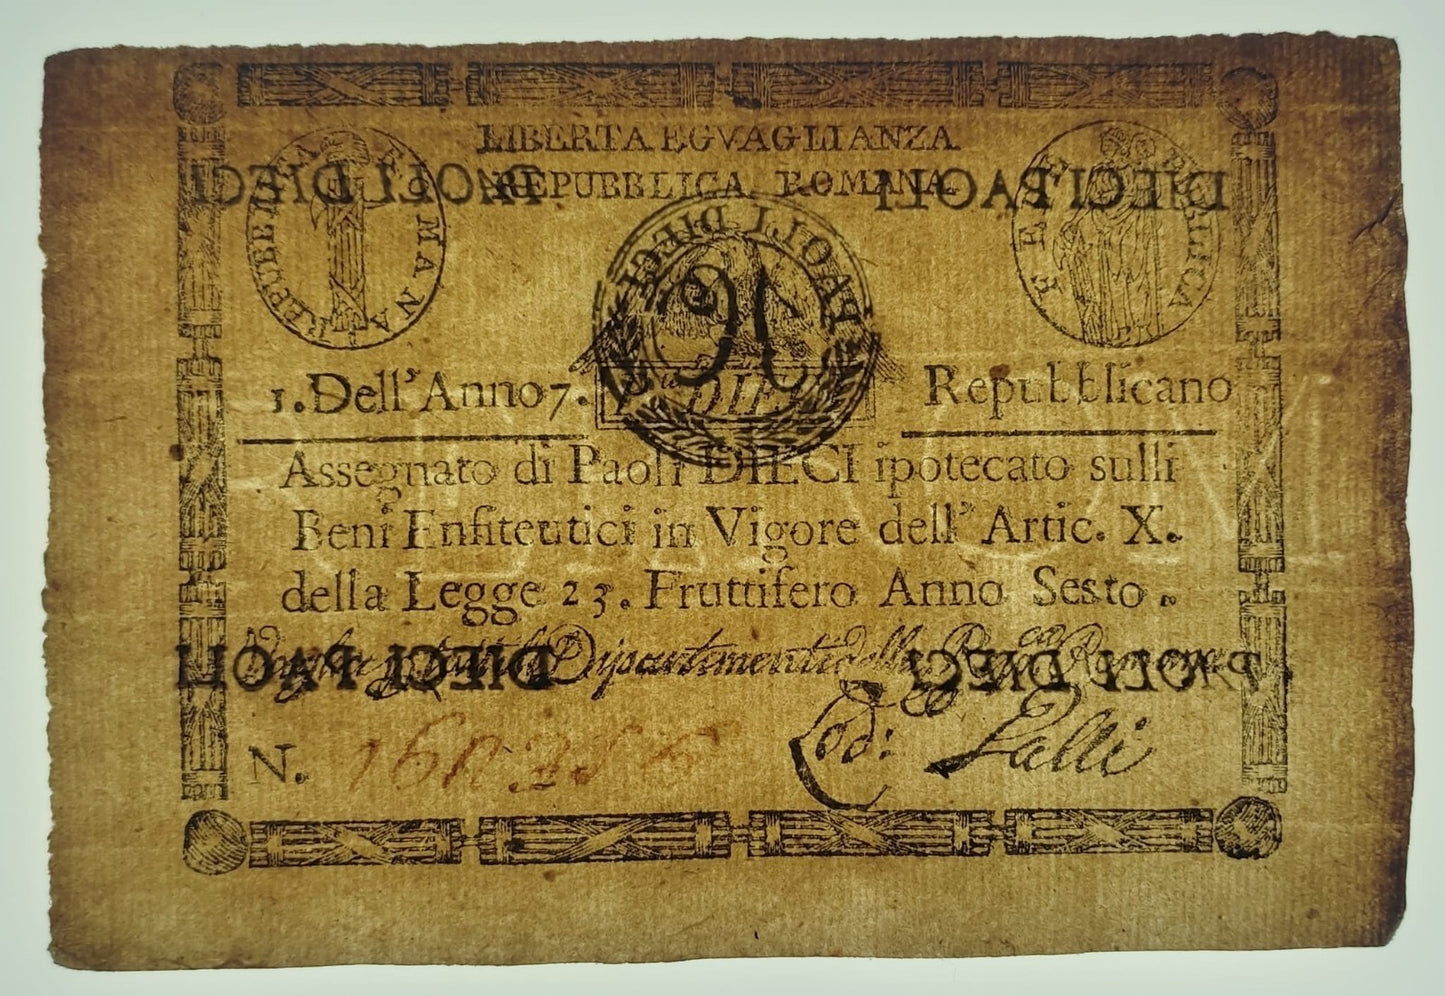 LIBERTA EGVAGLIANZA
REPUBBLICA ROMANA
REPUBBLICA ROMANA
FEDE PUBBLICA
PAOLI DIECI
DIECI PAOLI
PAOLI DIECI
1. Dell' Anno 7. Repubblicano
DIECI
Assegnato di Paoli DIECI ipotecato sulli
Beni Enfiteutici in Vigore dell' Artic. X.
della Legge 23. Fruttifero Anno Sesto.
Dipartimenti della Rep.ca Romana
DIECI PAOLI
PAOLI DIECI
N.
Cod: Lalli